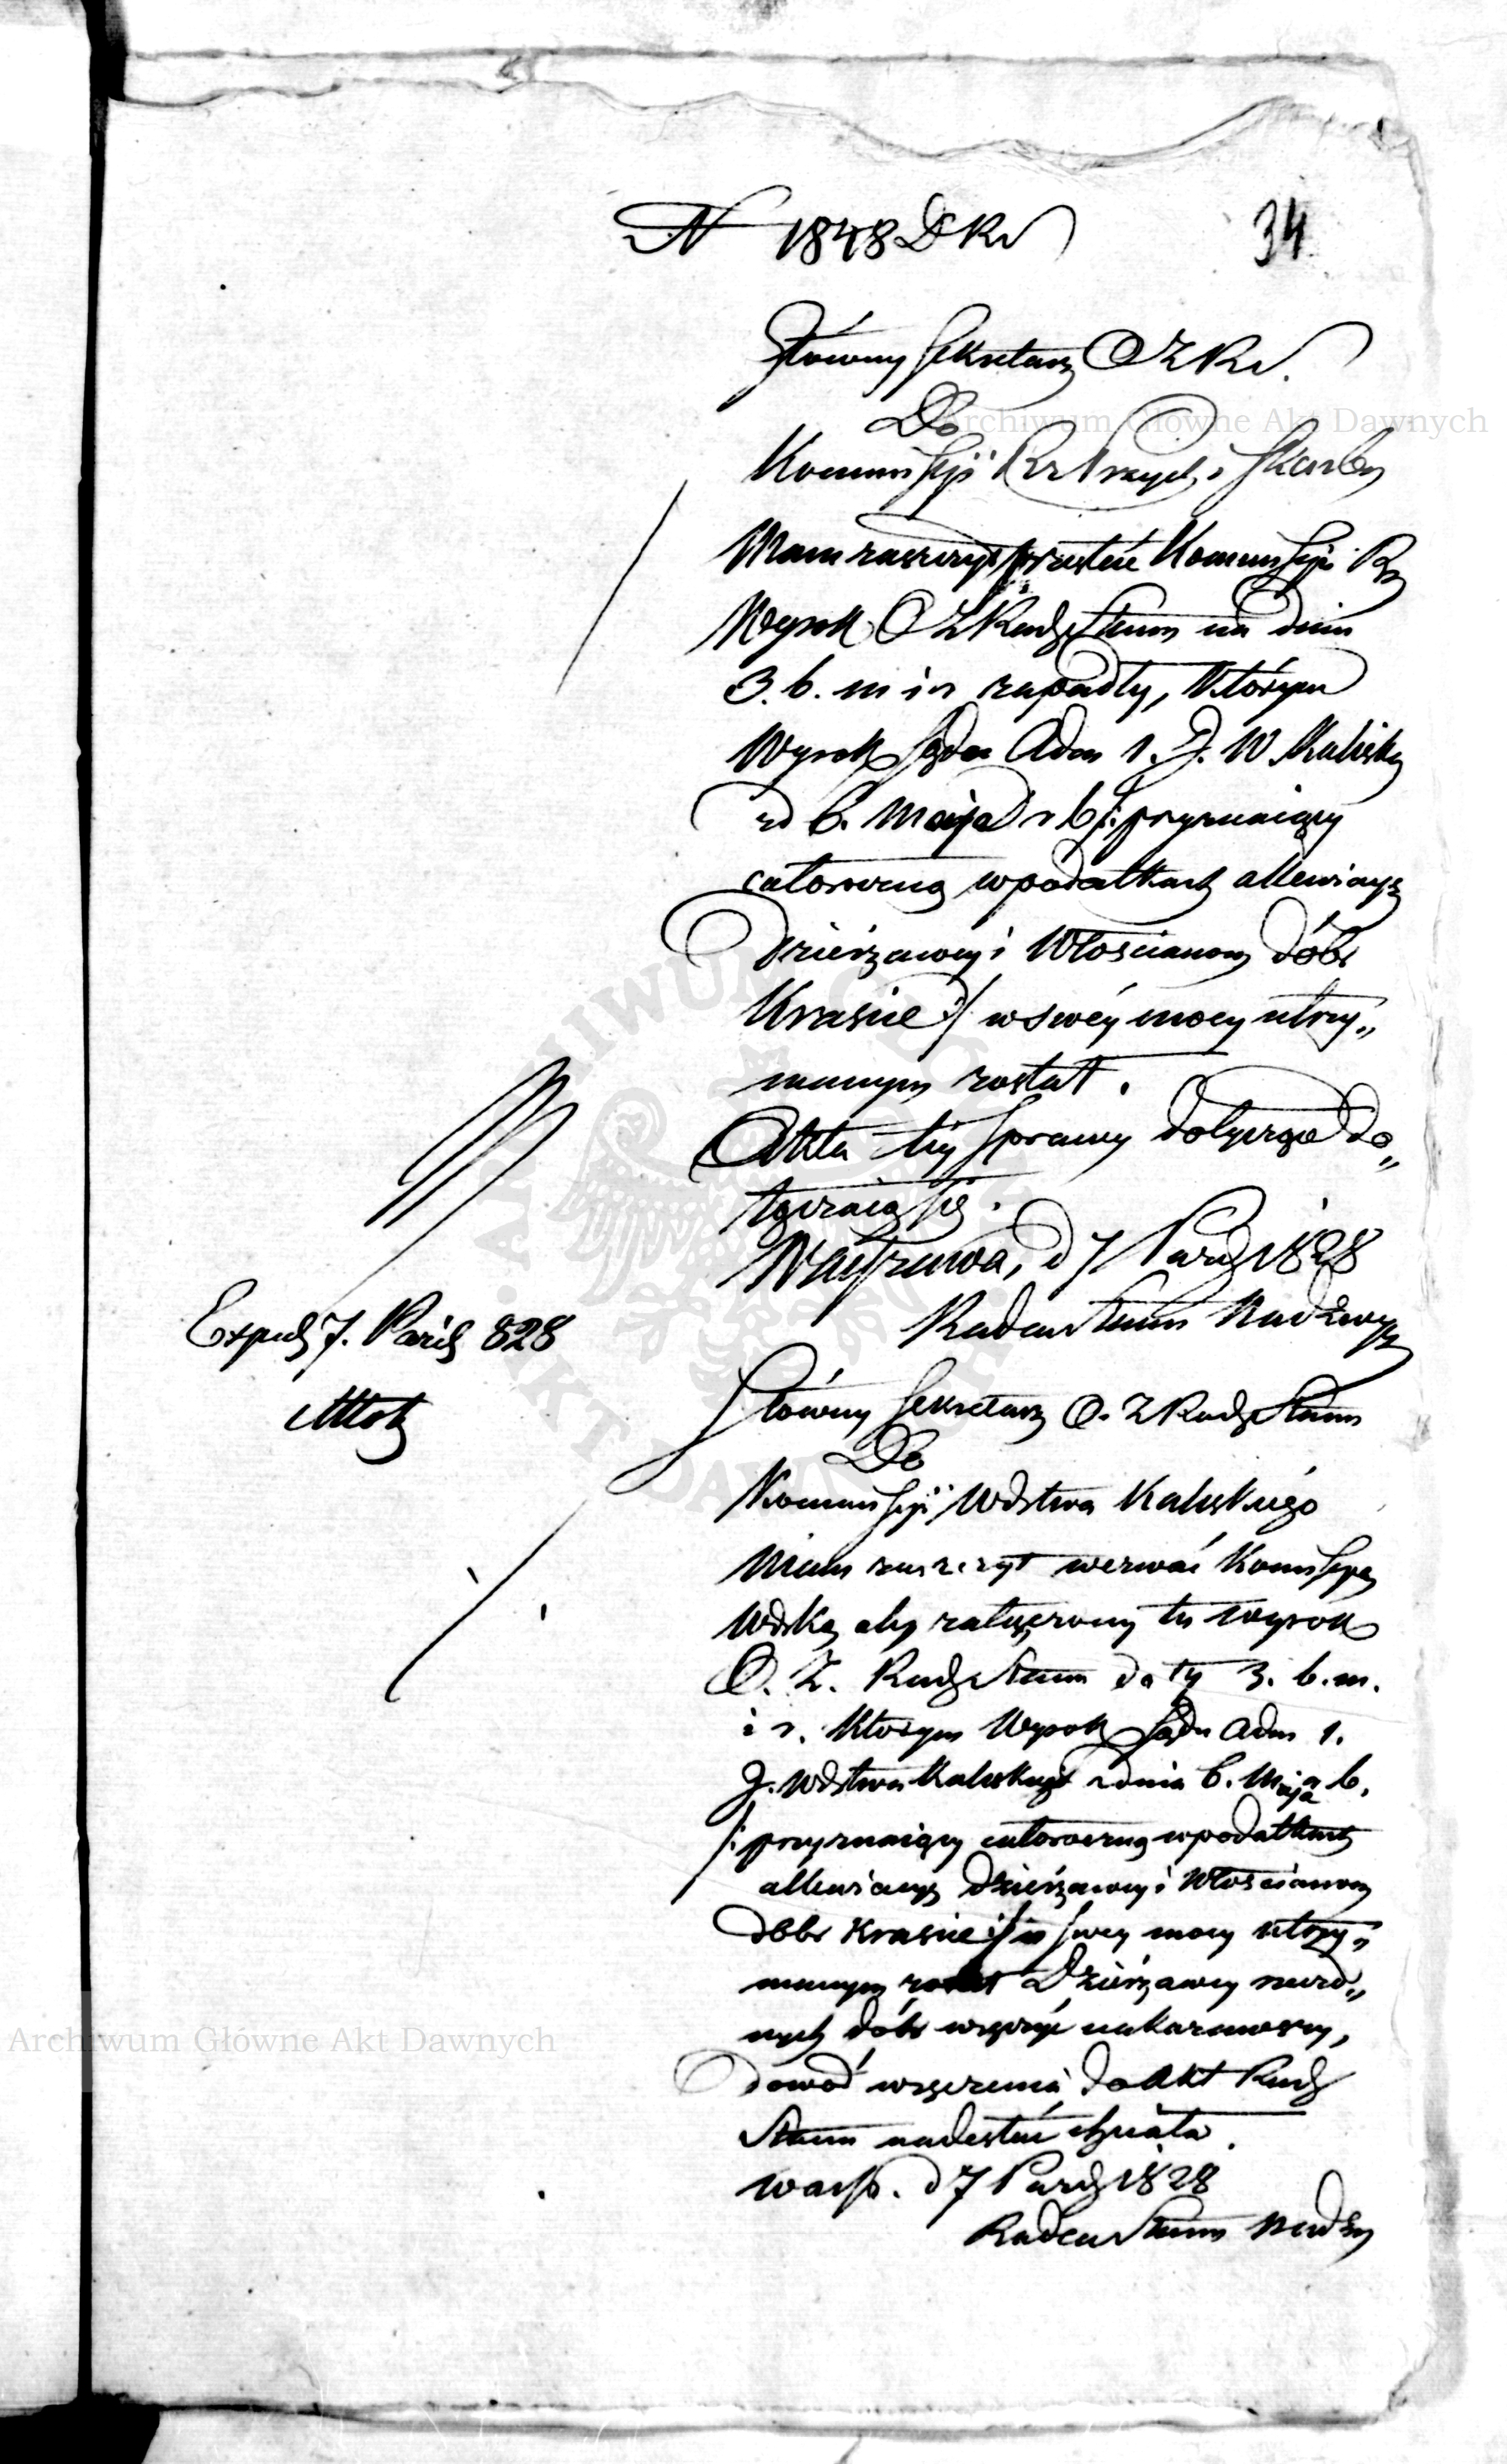 N 1848 D R S
34
Główny Sekretarz O Z R S.
Do
Kommissyi Rz Przych i Skarbu
Mam zaszczyt przesłać Kommissyi Rz
Wyrok O Z Rady Stanu na dniu
3. b. m i r zapadły, którym
Wyrok Sądu Adm 1. J. W Kalisk
z d 6. Maja r b /: przyznaiący
całoroczną w podatkach allewiacyą
Dzierżawcy i Włościanom dóbr
Krasne :/ w swéy mocy utrzy„
manym został.
Akta téy sprawy dotyczące do„
łączaią się.
Warszawa, d 7 Paźdz 1828
Radca Stanu Nadzwycz
Exped 7. Paźdz 828
Główny Sekretarz O. Z Rady Stanu
Do
Kommissyi Wdztwa Kaliskiego
Mam zaszczyt wezwać Kommissyą
Wdzką aby załączony tu wyrok
O. Z. Rady Stanu daty 3. b. m.
i r. którym Wyrok Sądu Adm 1.
J. Wdztwa Kaliskiego z dnia 6. Maja b.
/: przyznaiący całoroczną w podatkach
allewiacyą Dzierżawcy i Włościanom
dóbr Krasne :/ w swey mocy utrzy„
manym został Dzierżawcy rzeczo„
nych dóbr wręczyć nakazawszy,
dowód wręczenia do Akt Rady
Stanu nadesłać chciała.
Warsz. d 7 Paźdz 1828
Radca Stanu Nadzw
Archiwum Główne Akt Dawnych
Archiwum Główne Akt Dawnych